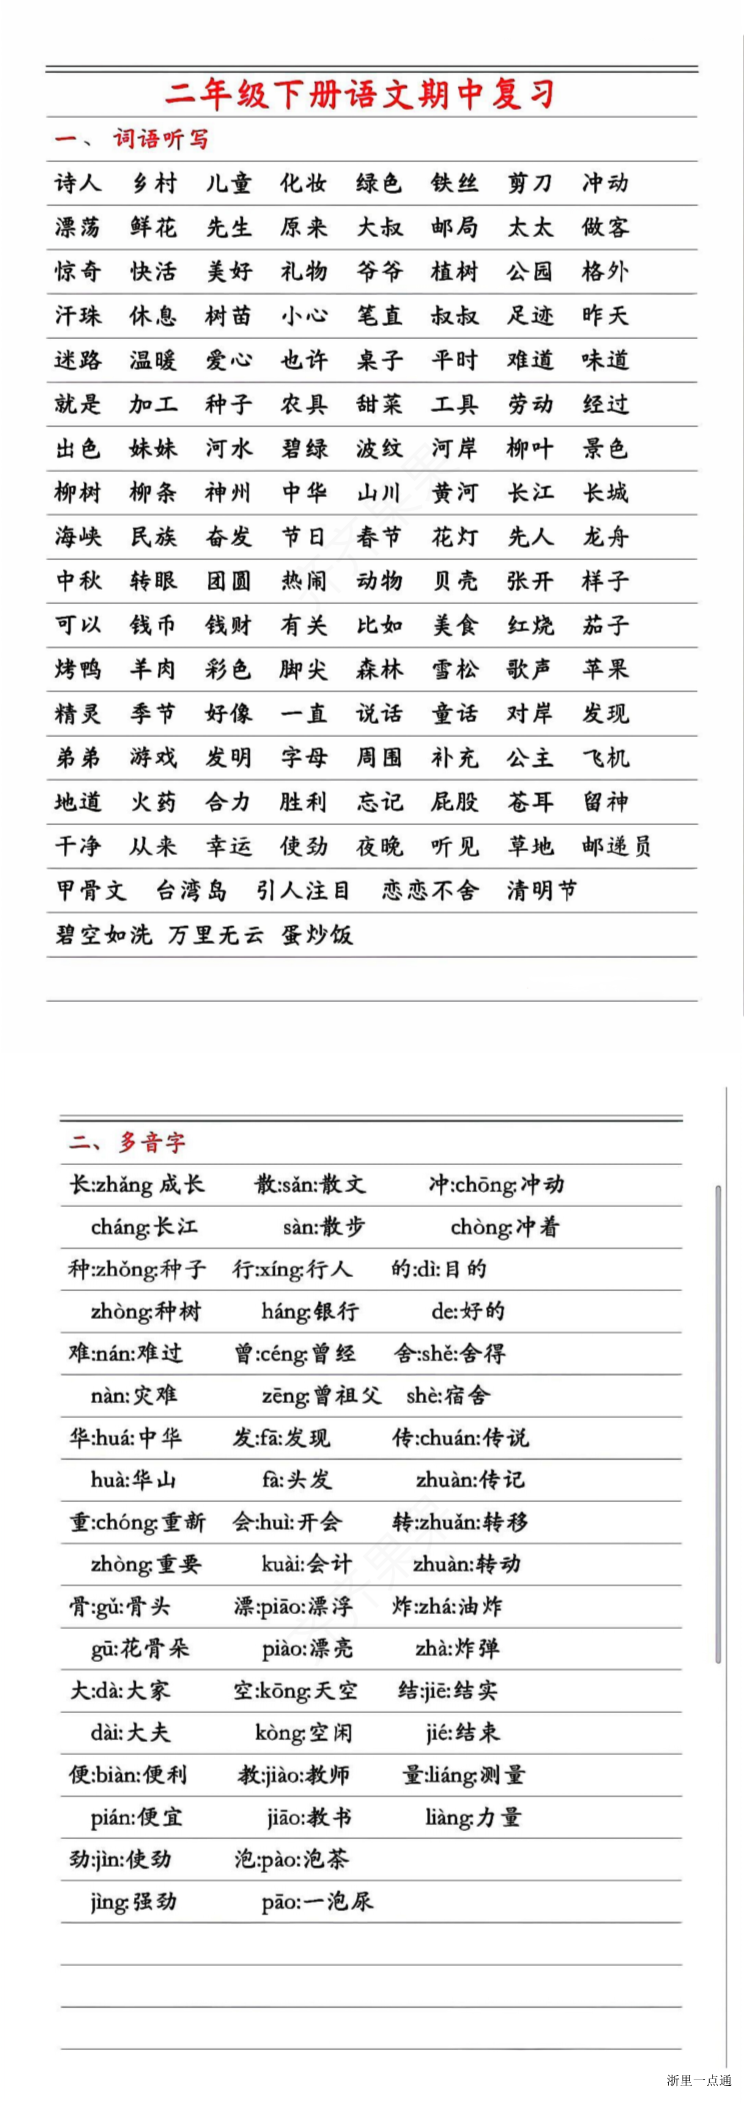 二年级下册语文期中复习
一、词语听写
诗人 乡村 儿童 化妆 绿色 铁丝 剪刀 冲动
漂荡 鲜花 先生 原来 大叔 邮局 太太 做客
惊奇 快活 美好 礼物 爷爷 植树 公园 格外
汗珠 休息 树苗 小心 笔直 叔叔 足迹 昨天
迷路 温暖 爱心 也许 桌子 平时 难道 味道
就是 加工 种子 农具 甜菜 工具 劳动 经过
出色 妹妹 河水 碧绿 波纹 河岸 柳叶 景色
柳树 柳条 神州 中华 山川 黄河 长江 长城
海峡 民族 奋发 节日 春节 花灯 先人 龙舟
中秋 转眼 团圆 热闹 动物 贝壳 张开 样子
可以 钱币 钱财 有关 比如 美食 红烧 茄子
烤鸭 羊肉 彩色 脚尖 森林 雪松 歌声 苹果
精灵 季节 好像 一直 说话 童话 对岸 发现
弟弟 游戏 发明 字母 周围 补充 公主 飞机
地道 火药 合力 胜利 忘记 屁股 苍耳 留神
干净 从来 幸运 使劲 夜晚 听见 草地 邮递员
甲骨文 台湾岛 引人注目 恋恋不舍 清明节
碧空如洗 万里无云 蛋炒饭
二、多音字
长:zhǎng 成长 散:sǎn:散文 冲:chōng:冲动
cháng:长江 sàn:散步 chòng:冲着
种:zhǒng:种子 行:xíng:行人 的:dì:目的
zhòng:种树 háng:银行 de:好的
难:nán:难过 曾:céng:曾经 舍:shě:舍得
nàn:灾难 zēng:曾祖父 shè:宿舍
华:huá:中华 发:fā:发现 传:chuán:传说
huà:华山 fà:头发 zhuàn:传记
重:chóng:重新 会:huì:开会 转:zhuǎn:转移
zhòng:重要 kuài:会计 zhuàn:转动
骨:gǔ:骨头 漂:piāo:漂浮 炸:zhá:油炸
gū:花骨朵 piào:漂亮 zhà:炸弹
大:dà:大家 空:kōng:天空 结:jiē:结实
dài:大夫 kòng:空闲 jié:结束
便:biàn:便利 教:jiào:教师 量:liáng:测量
pián:便宜 jiāo:教书 liàng:力量
劲:jìn:使劲 泡:pào:泡茶
jìng:强劲 pāo:一泡尿
浙里一点通